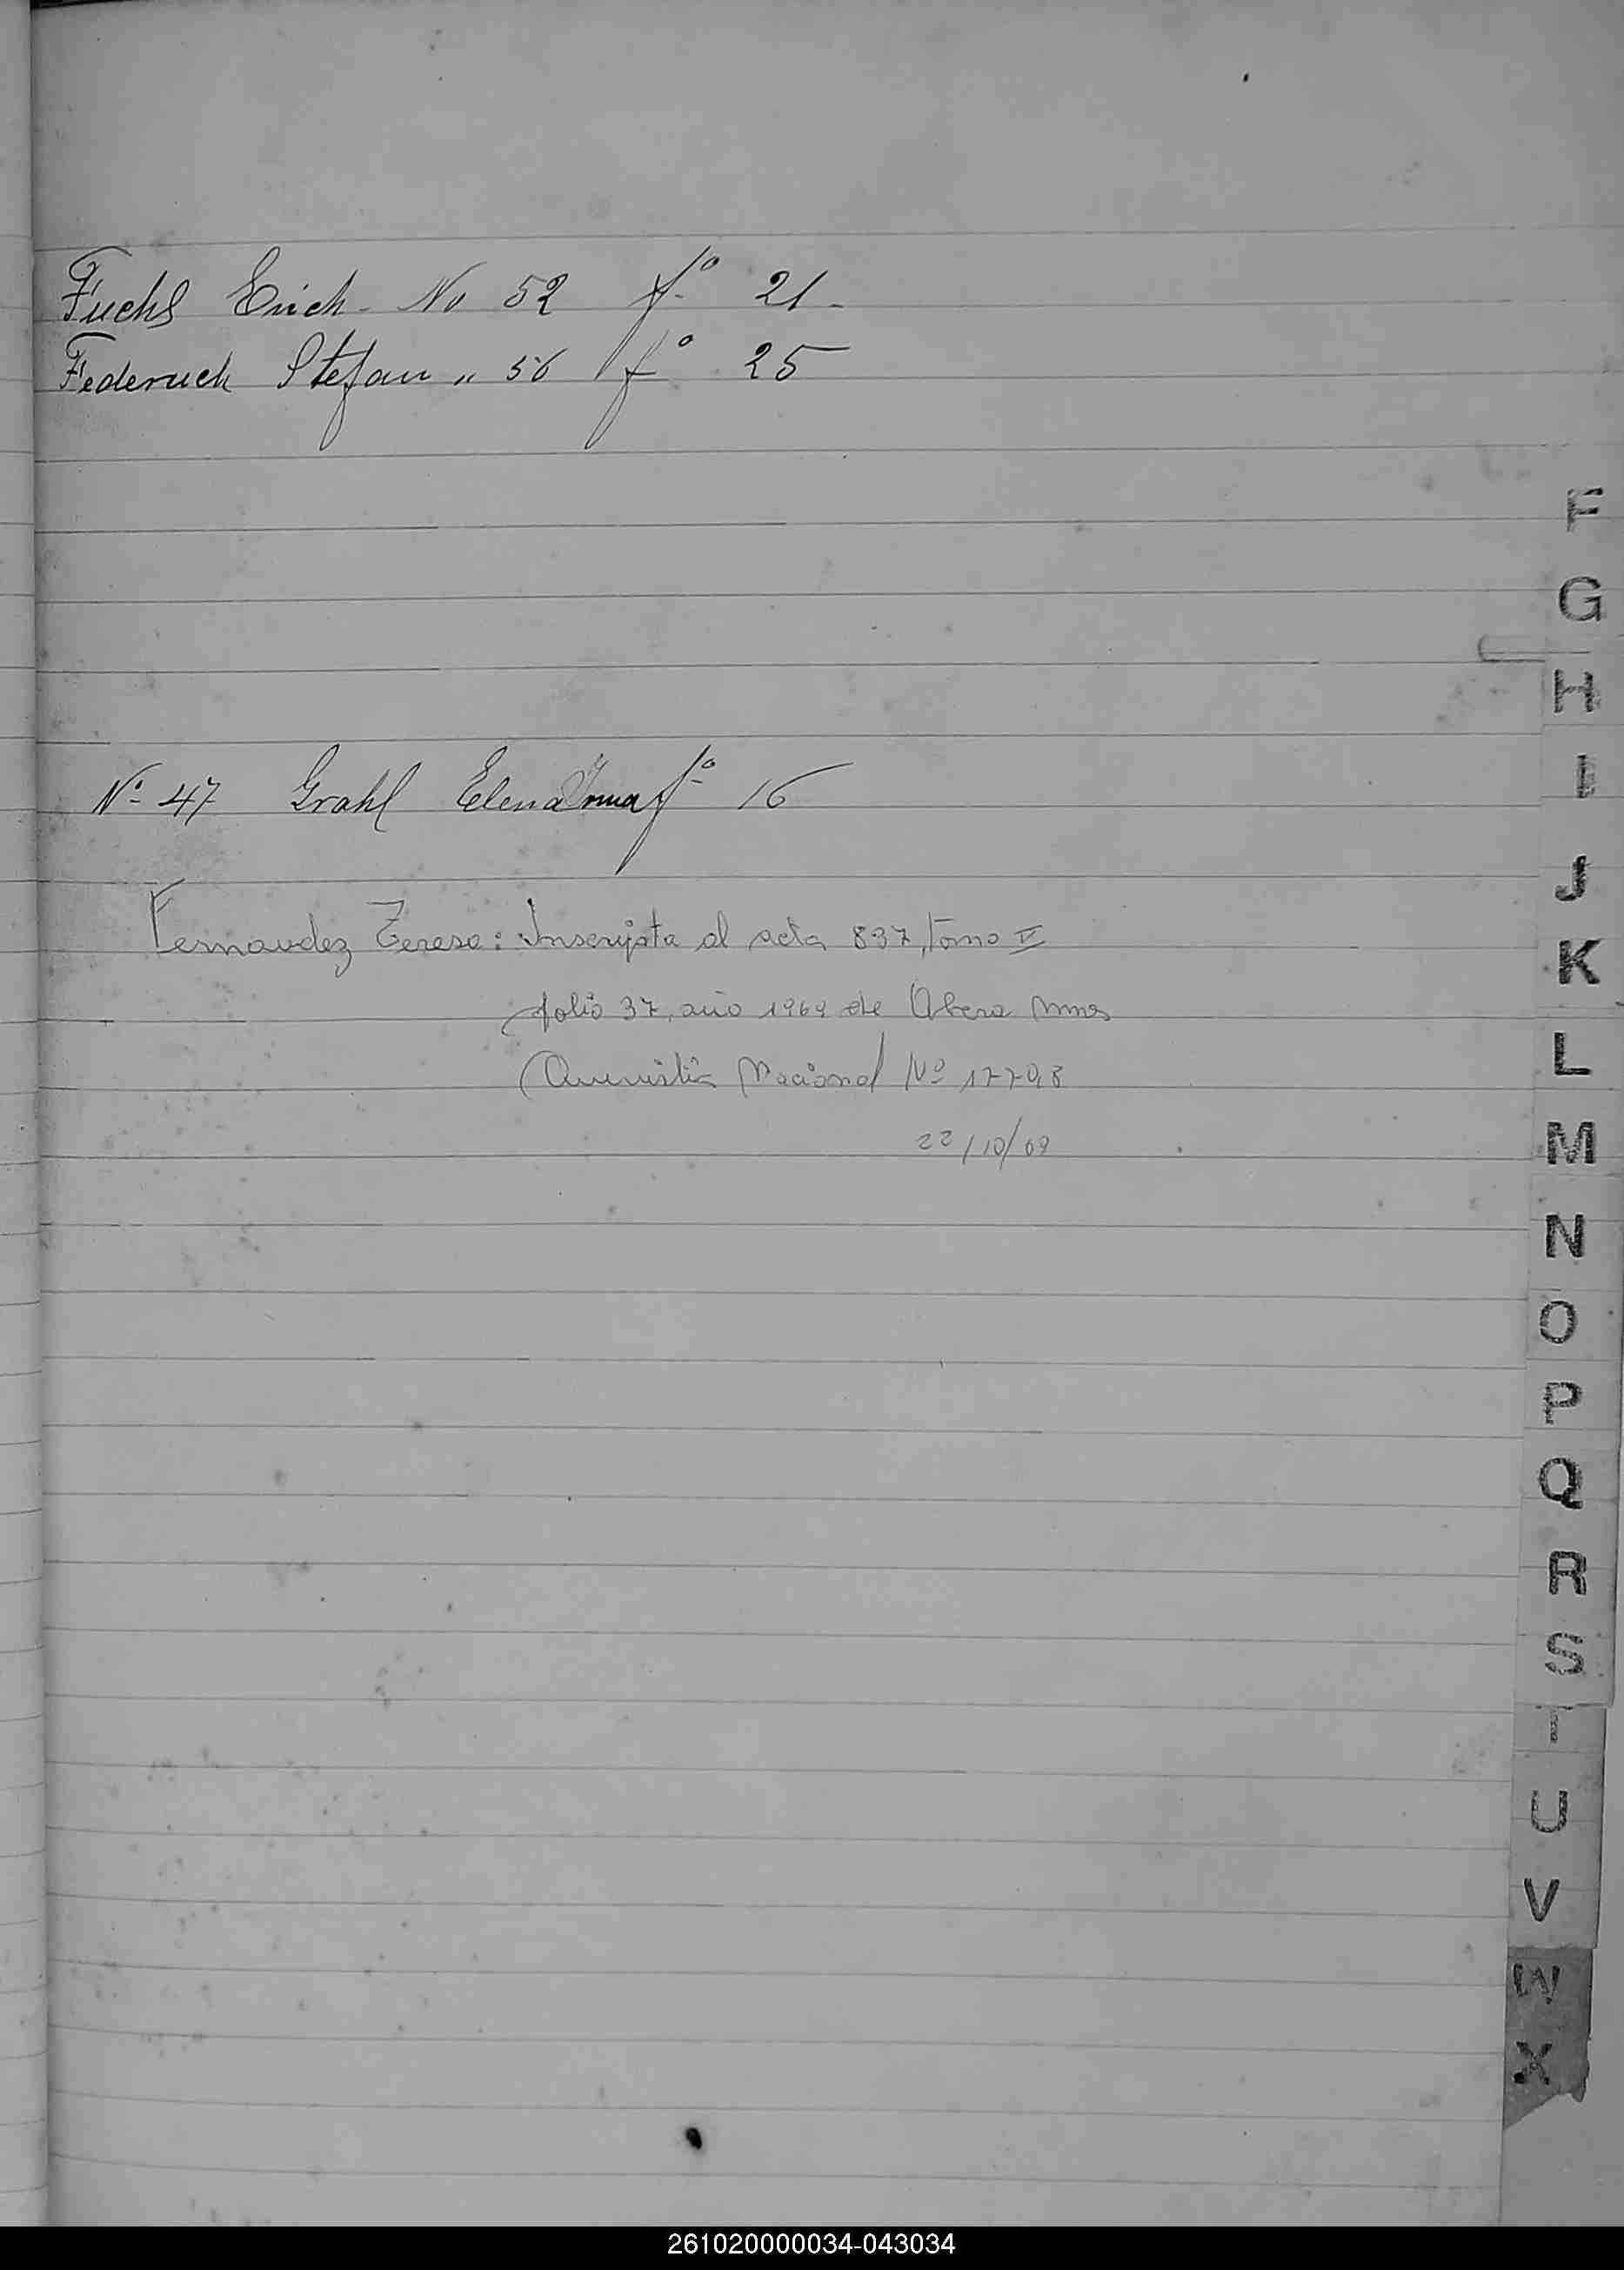 Fuchs Erich - No 52 fº 21 -
Federuck Stefan " 56 fº 25
Nº 47 Grahl Elena Irma fº 16
Fernandez Teresa: Inscripta al acta 837, Tomo II
folio 37, año 1969 de Obera Mnes
(Amnistia Nacional Nº 17
22/10/69
F
G
H
I
J
K
L
M
N
O
P
Q
R
S
T
U
V
W
X
261020000034-043034